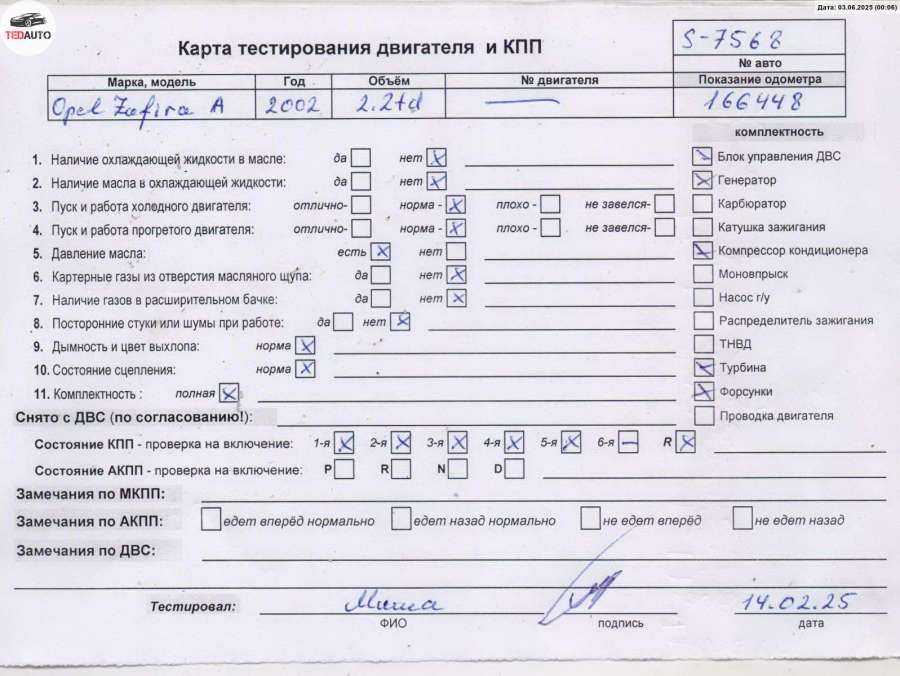 Дата: 03.06.2025 (00:06)
TEDAUTO
Карта тестирования двигателя и КПП
S-7568
№ авто
Марка, модель Год Объём № двигателя Показание одометра
Opel Zafira A 2002 2.2td — 166448
комплектность
1. Наличие охлаждающей жидкости в масле: да нет X
2. Наличие масла в охлаждающей жидкости: да нет X
3. Пуск и работа холедного двигателя: отлично- норма - X плохо - не завелся-
4. Пуск и работа прогретого двигателя: отлично- норма - X плохо - не завелся-
5. Давление масла: есть X нет
6. Картерные газы из отверстия масляного щупа: да нет X
7. Наличие газов в расширительном бачке: да нет X
8. Посторонние стуки или шумы при работе: да нет X
9. Дымность и цвет выхлопа: норма X
10. Состояние сцепления: норма X
11. Комплектность : полная X
X Блок управления ДВС
X Генератор
Карбюратор
Катушка зажигания
X Компрессор кондиционера
Моновпрыск
Насос г/у
Распределитель зажигания
ТНВД
X Турбина
X Форсунки
Проводка двигателя
Снято с ДВС (по согласованию!):
Состояние КПП - проверка на включение: 1-я X 2-я X 3-я X 4-я X 5-я X 6-я — R X
Состояние АКПП - проверка на включение: P R N D
Замечания по МКПП:
Замечания по АКПП: едет вперёд нормально едет назад нормально не едет вперёд не едет назад
Замечания по ДВС:
Тестировал: Миша 14.02.25
ФИО подпись дата